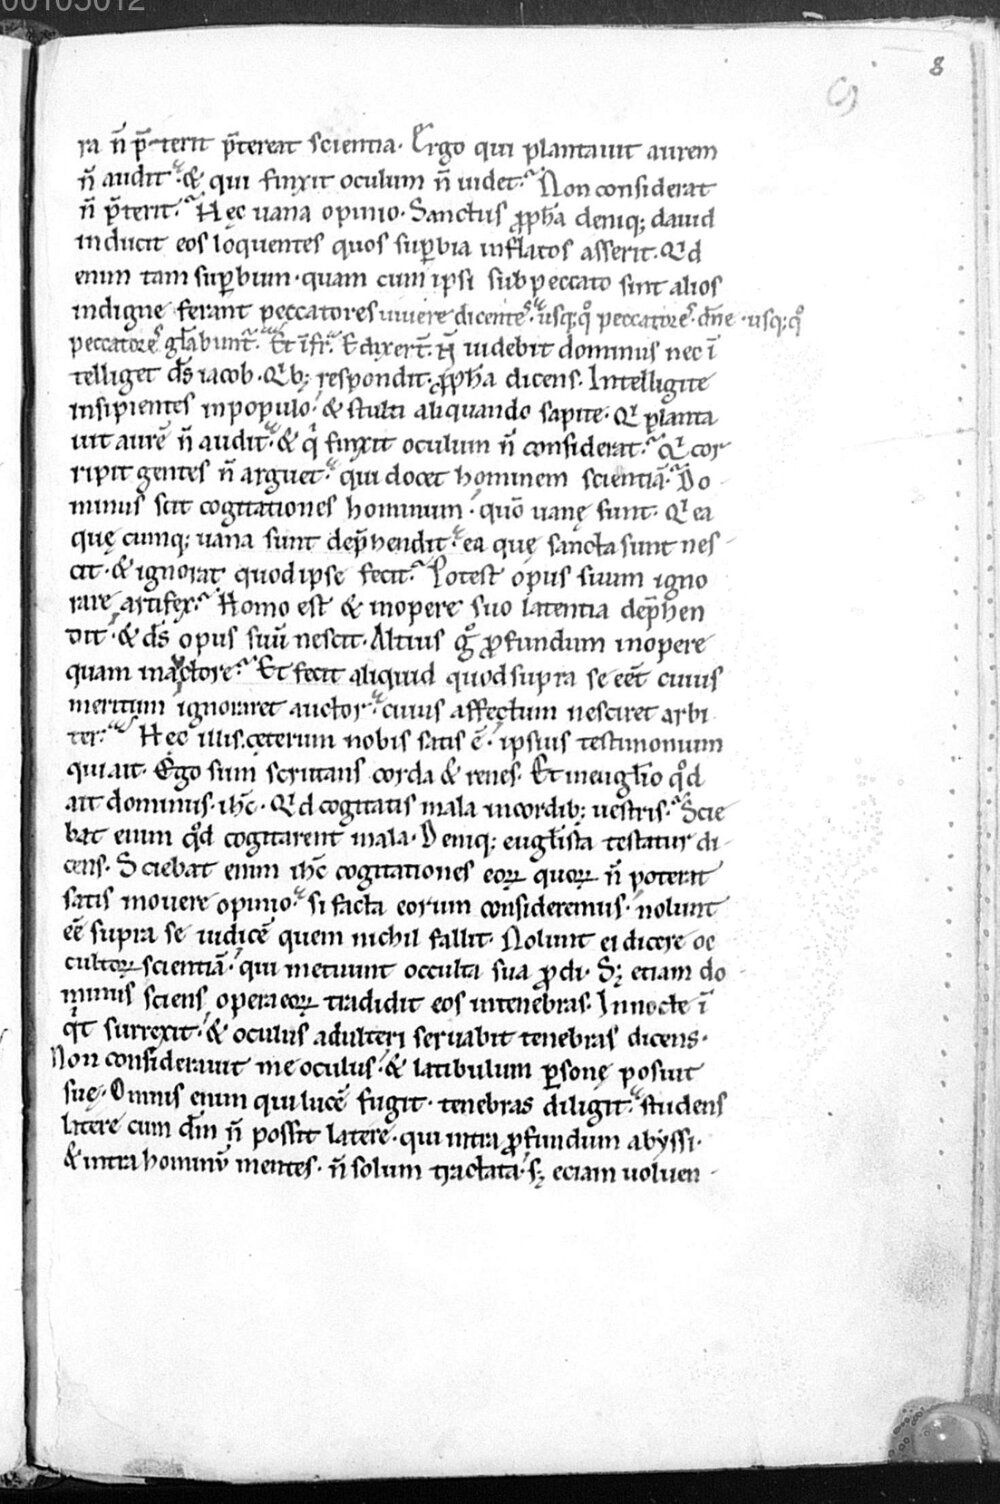 00105012
8
ra n̄ p̄terit p̄tereat scientia· Ergo qui plantauit aurem
n̄ audit· & qui finxit oculum n̄ uidet· Non considerat
n̄ p̄terit· Hęc uana opinio· Sanctus ꝓph̄a deniq; dauid
inducit eos loquentes quos suꝑbia inflatos asserit· Qd
enim tam suꝑbum· quam cum ipsi sub peccato sint alios
indigne ferant peccatores uiuere dicentes· usq;q̊ peccatores· dn̄e· usq;q̊
peccatores gl̄abunt̄· Et īfr̄· Et dixert̄· N̄ uidebit dominus nec ī
telliget ds̄ iacob· Qb; respondit· ꝓph̄a dicens· Intelligite
insipientes in populo· & stulti aliquando sapite· Q planta
uit aurē n̄ audit· & q finxit oculum n̄ considerat· Q cor
ripit gentes n̄ arguet· qui docet hominem scientiā· Do-
minus scit cogitationes hominum· quō uanę sunt· Q ea
quę cumq; uana sunt dep̄hendit· ea quę sancta sunt nes-
cit· & ignorat quod ipse fecit· Potest opus suum igno
rare artifex· Homo est & in opere suo latentia dep̄hen
dit· & ds̄ opus suū nescit· Altius g ꝓfundum in opere
quam in actore· Et fecit aliquid quod supra se eēt cuius
meritum ignoraret auctor· cuius affectum nesciret arbi
ter· Hęc illis· cęterum nobis satis ē· ipsius testimonium
qui ait· Ego sum scrutans corda & renes· Et in eugl̄io qd
ait dominus ih̄c· Qd cogitatis mala in cordib; uestris· Scie
bat enim qd cogitarent mala· Deniq; eugl̄ista testatur di-
cens· Sciebat enim ih̄c cogitationes eoꝝ quoꝝ n̄ poterit
satis mouere opinio· si facta eorum consideremus· nolunt
eē supra se iudicē quem nichil fallit· Nolunt ei dicere oc
cultoꝝ scientiā· qui metuunt occulta sua ꝓdi· Sꝫ etiam do-
minus sciens opera eoꝝ tradidit eos in tenebras· In nocte ī
qt surrexit· & oculus adulteri seruabit tenebras dicens·
Non considerauit me oculus· & latibulum ꝑsonę posuit
suę· Omnis enim qui lucē fugit· tenebras diligit· studens
latere cum dm̄ n̄ possit latere· qui intra ꝓfundum abyssi·
& intra hominū mentes· n̄ solum tractata· sꝫ eciam uoluen-